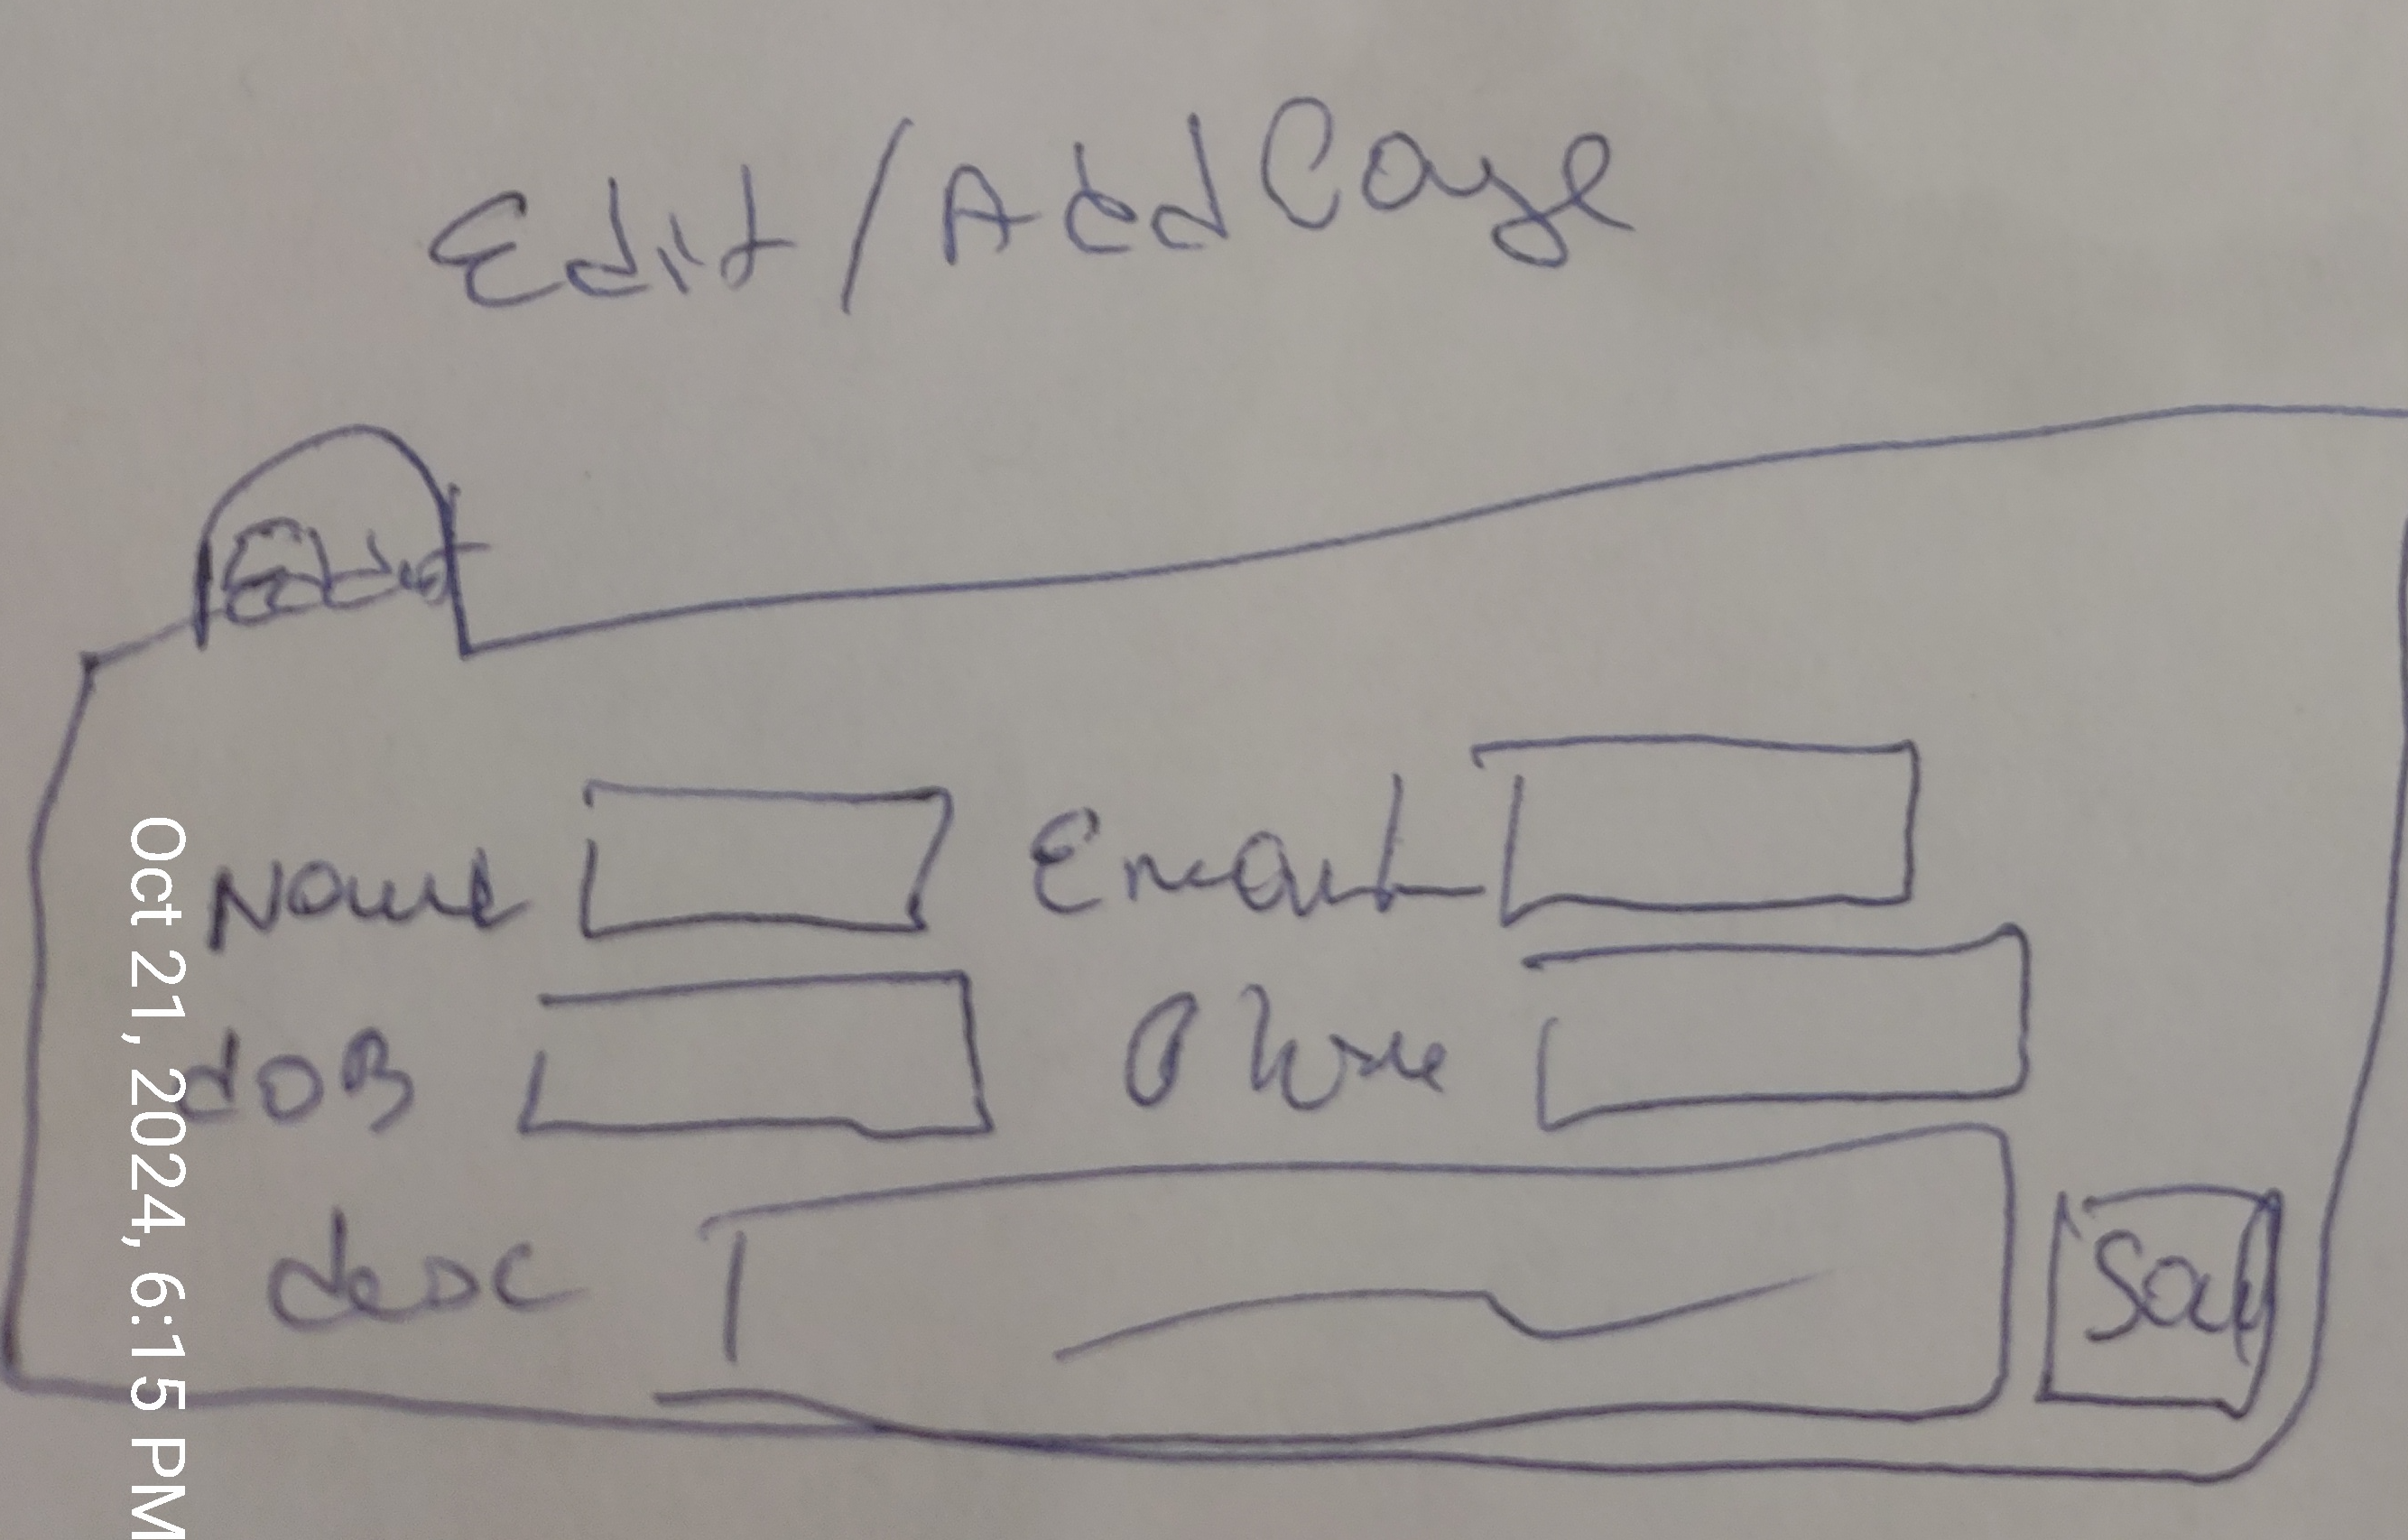 Edit/Add Case
Edit
Name
Email
dOB
Phone
desc
Save
Oct 21, 2024, 6:15 PM